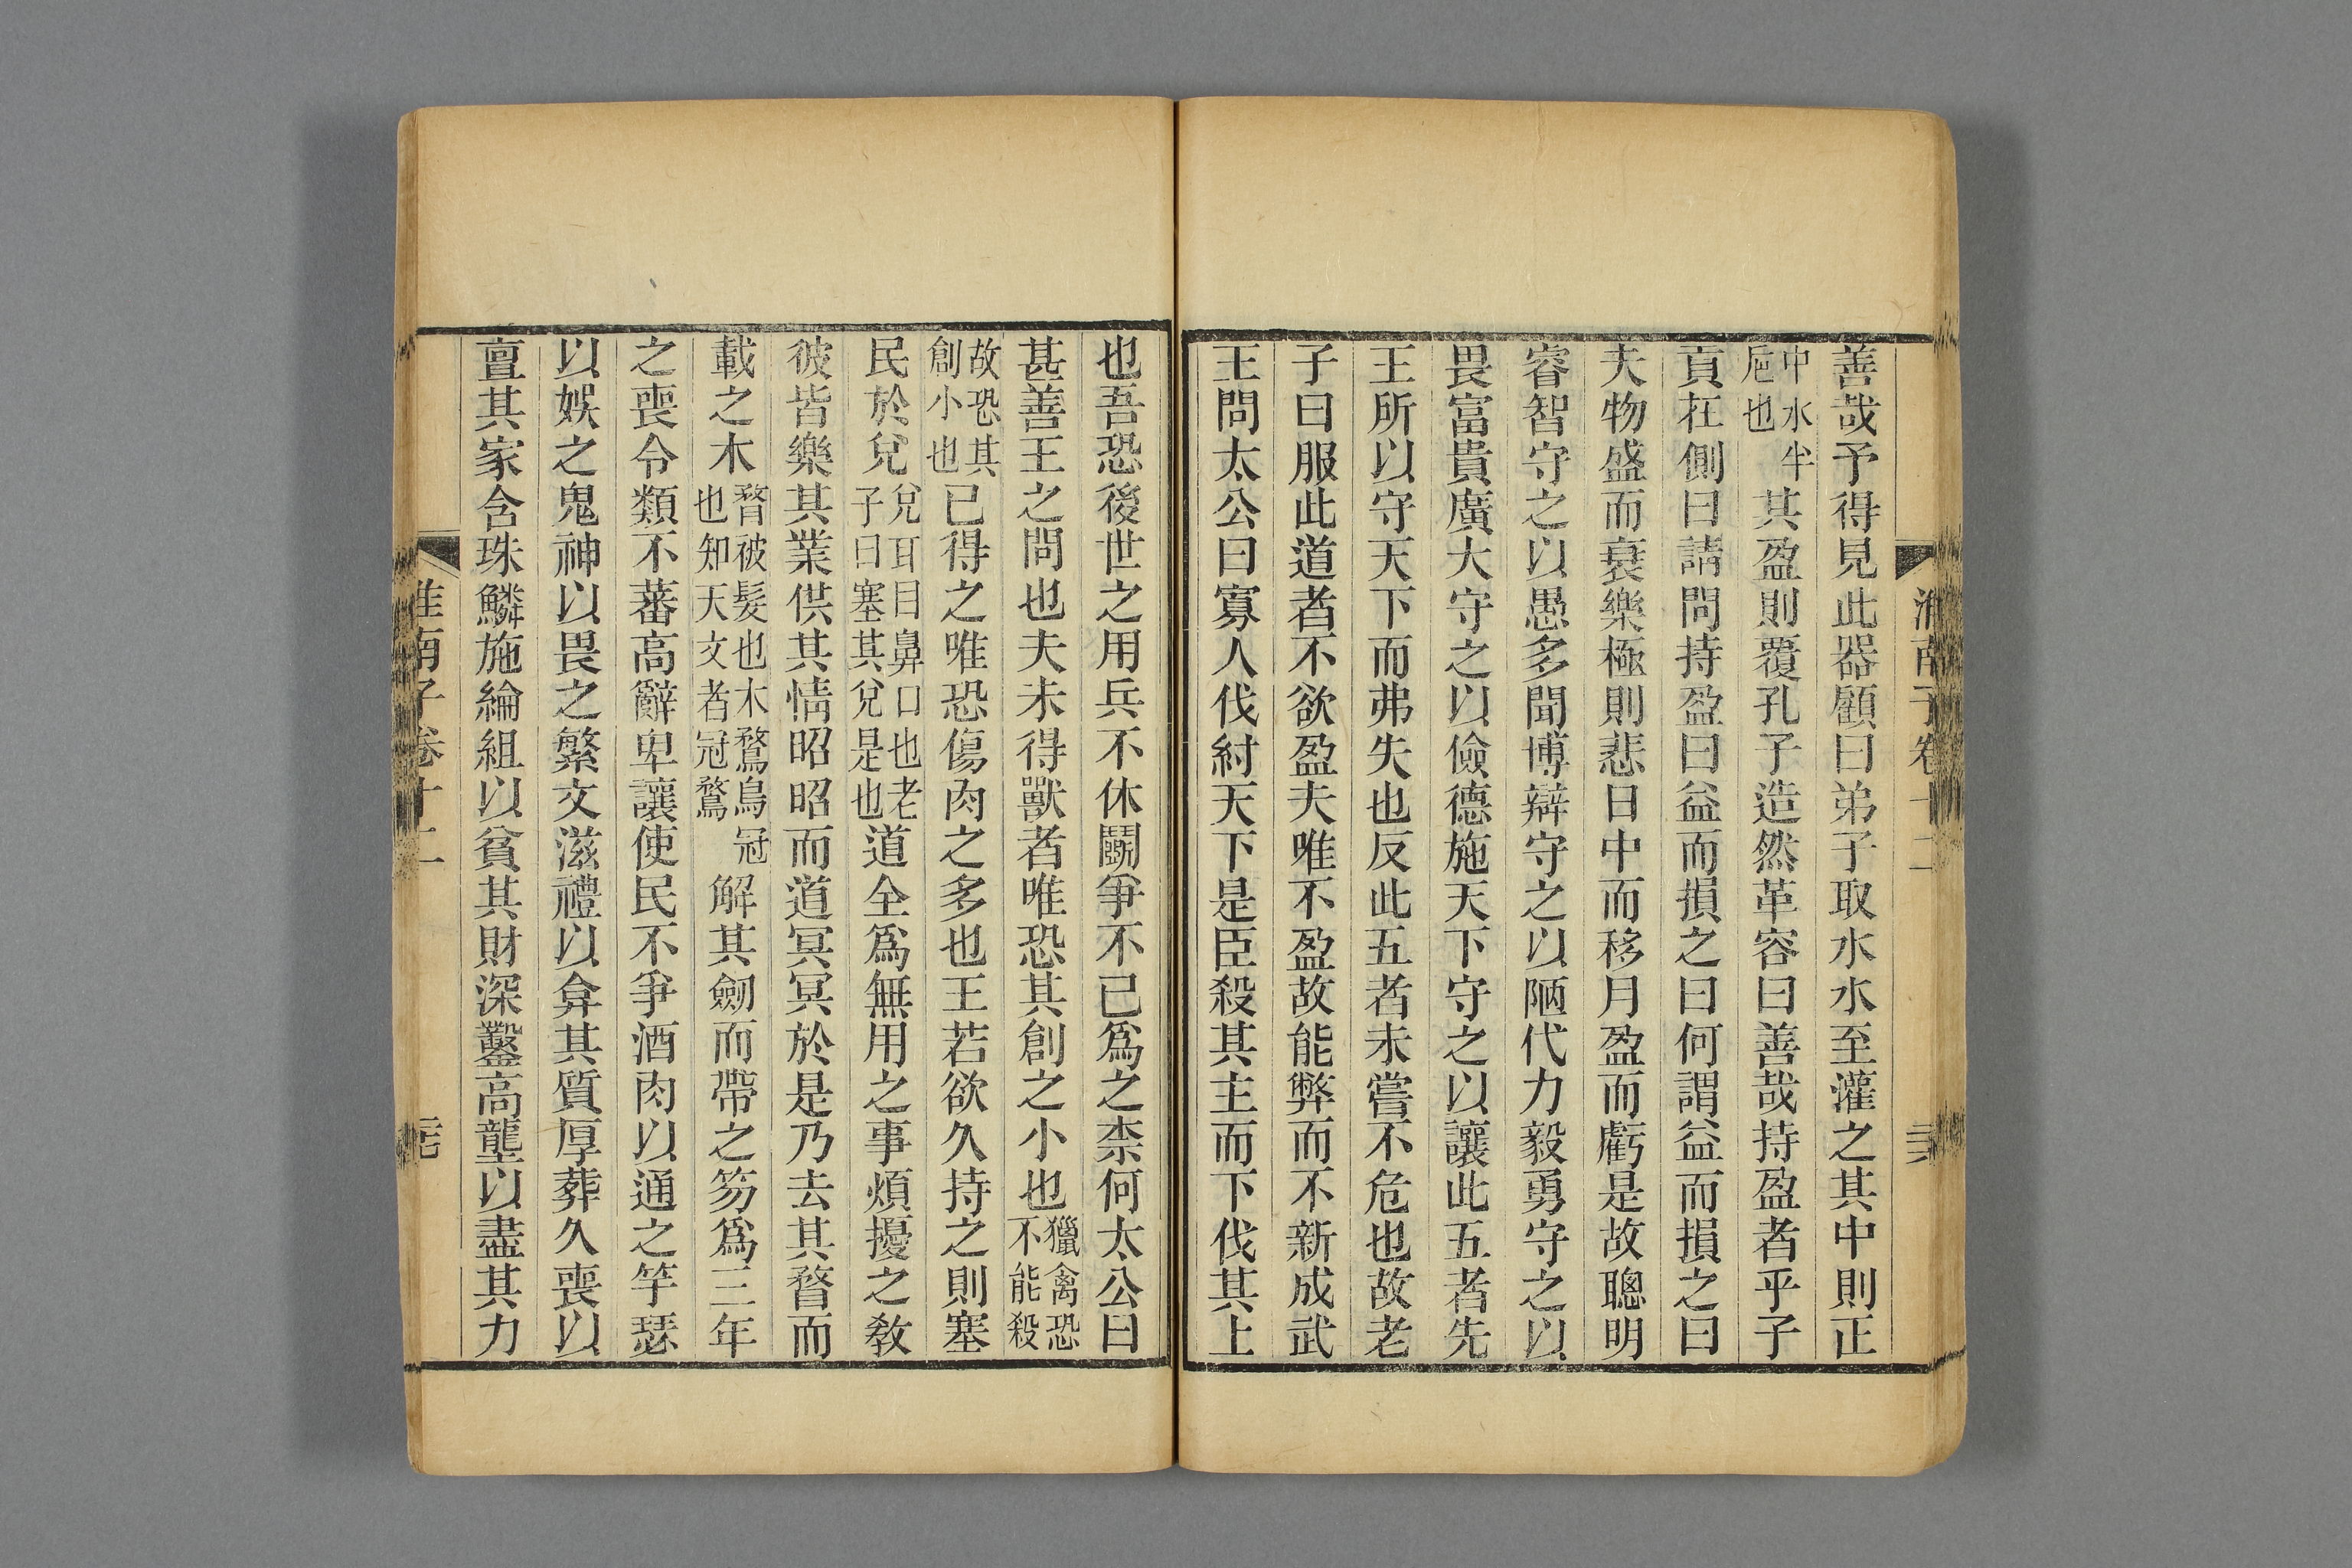 善哉予得見此器顧曰弟子取水水至灌之其中則正
中水半巵也其盈則覆孔子造然革容曰善哉持盈者乎子
貢在側曰請問持盈曰益而損之曰何謂益而損之曰
夫物盛而衰樂極則悲日中而移月盈而虧是故聰明
睿智守之以愚多聞博辯守之以陋代力毅勇守之以
畏富貴廣大守之以儉德施天下守之以讓此五者先
王所以守天下而弗失也反此五者未嘗不危也故老
子曰服此道者不欲盈夫唯不盈故能弊而不新成武
王問太公曰寡人伐紂天下是臣殺其主而下伐其上
也吾恐後世之用兵不休鬭爭不已爲之柰何太公曰
甚善王之問也夫未得獸者唯恐其創之小也獵禽恐不能殺
故恐其創小也已得之唯恐傷肉之多也王若欲久持之則塞
民於兌兌耳目鼻口也老子曰塞其兌是也道全爲無用之事煩擾之敎
彼皆樂其業供其情昭昭而道冥冥於是乃去其瞀而
載之木瞀被髮也木鶩鳥冠也知天文者冠鶩解其劒而帶之笏爲三年
之喪令類不蕃高辭卑讓使民不爭酒肉以通之竽瑟
以娛之鬼神以畏之繁文滋禮以弇其質厚葬久喪以
亶其家含珠鱗施綸組以貧其財深鑿高壟以盡其力
淮南子卷十二